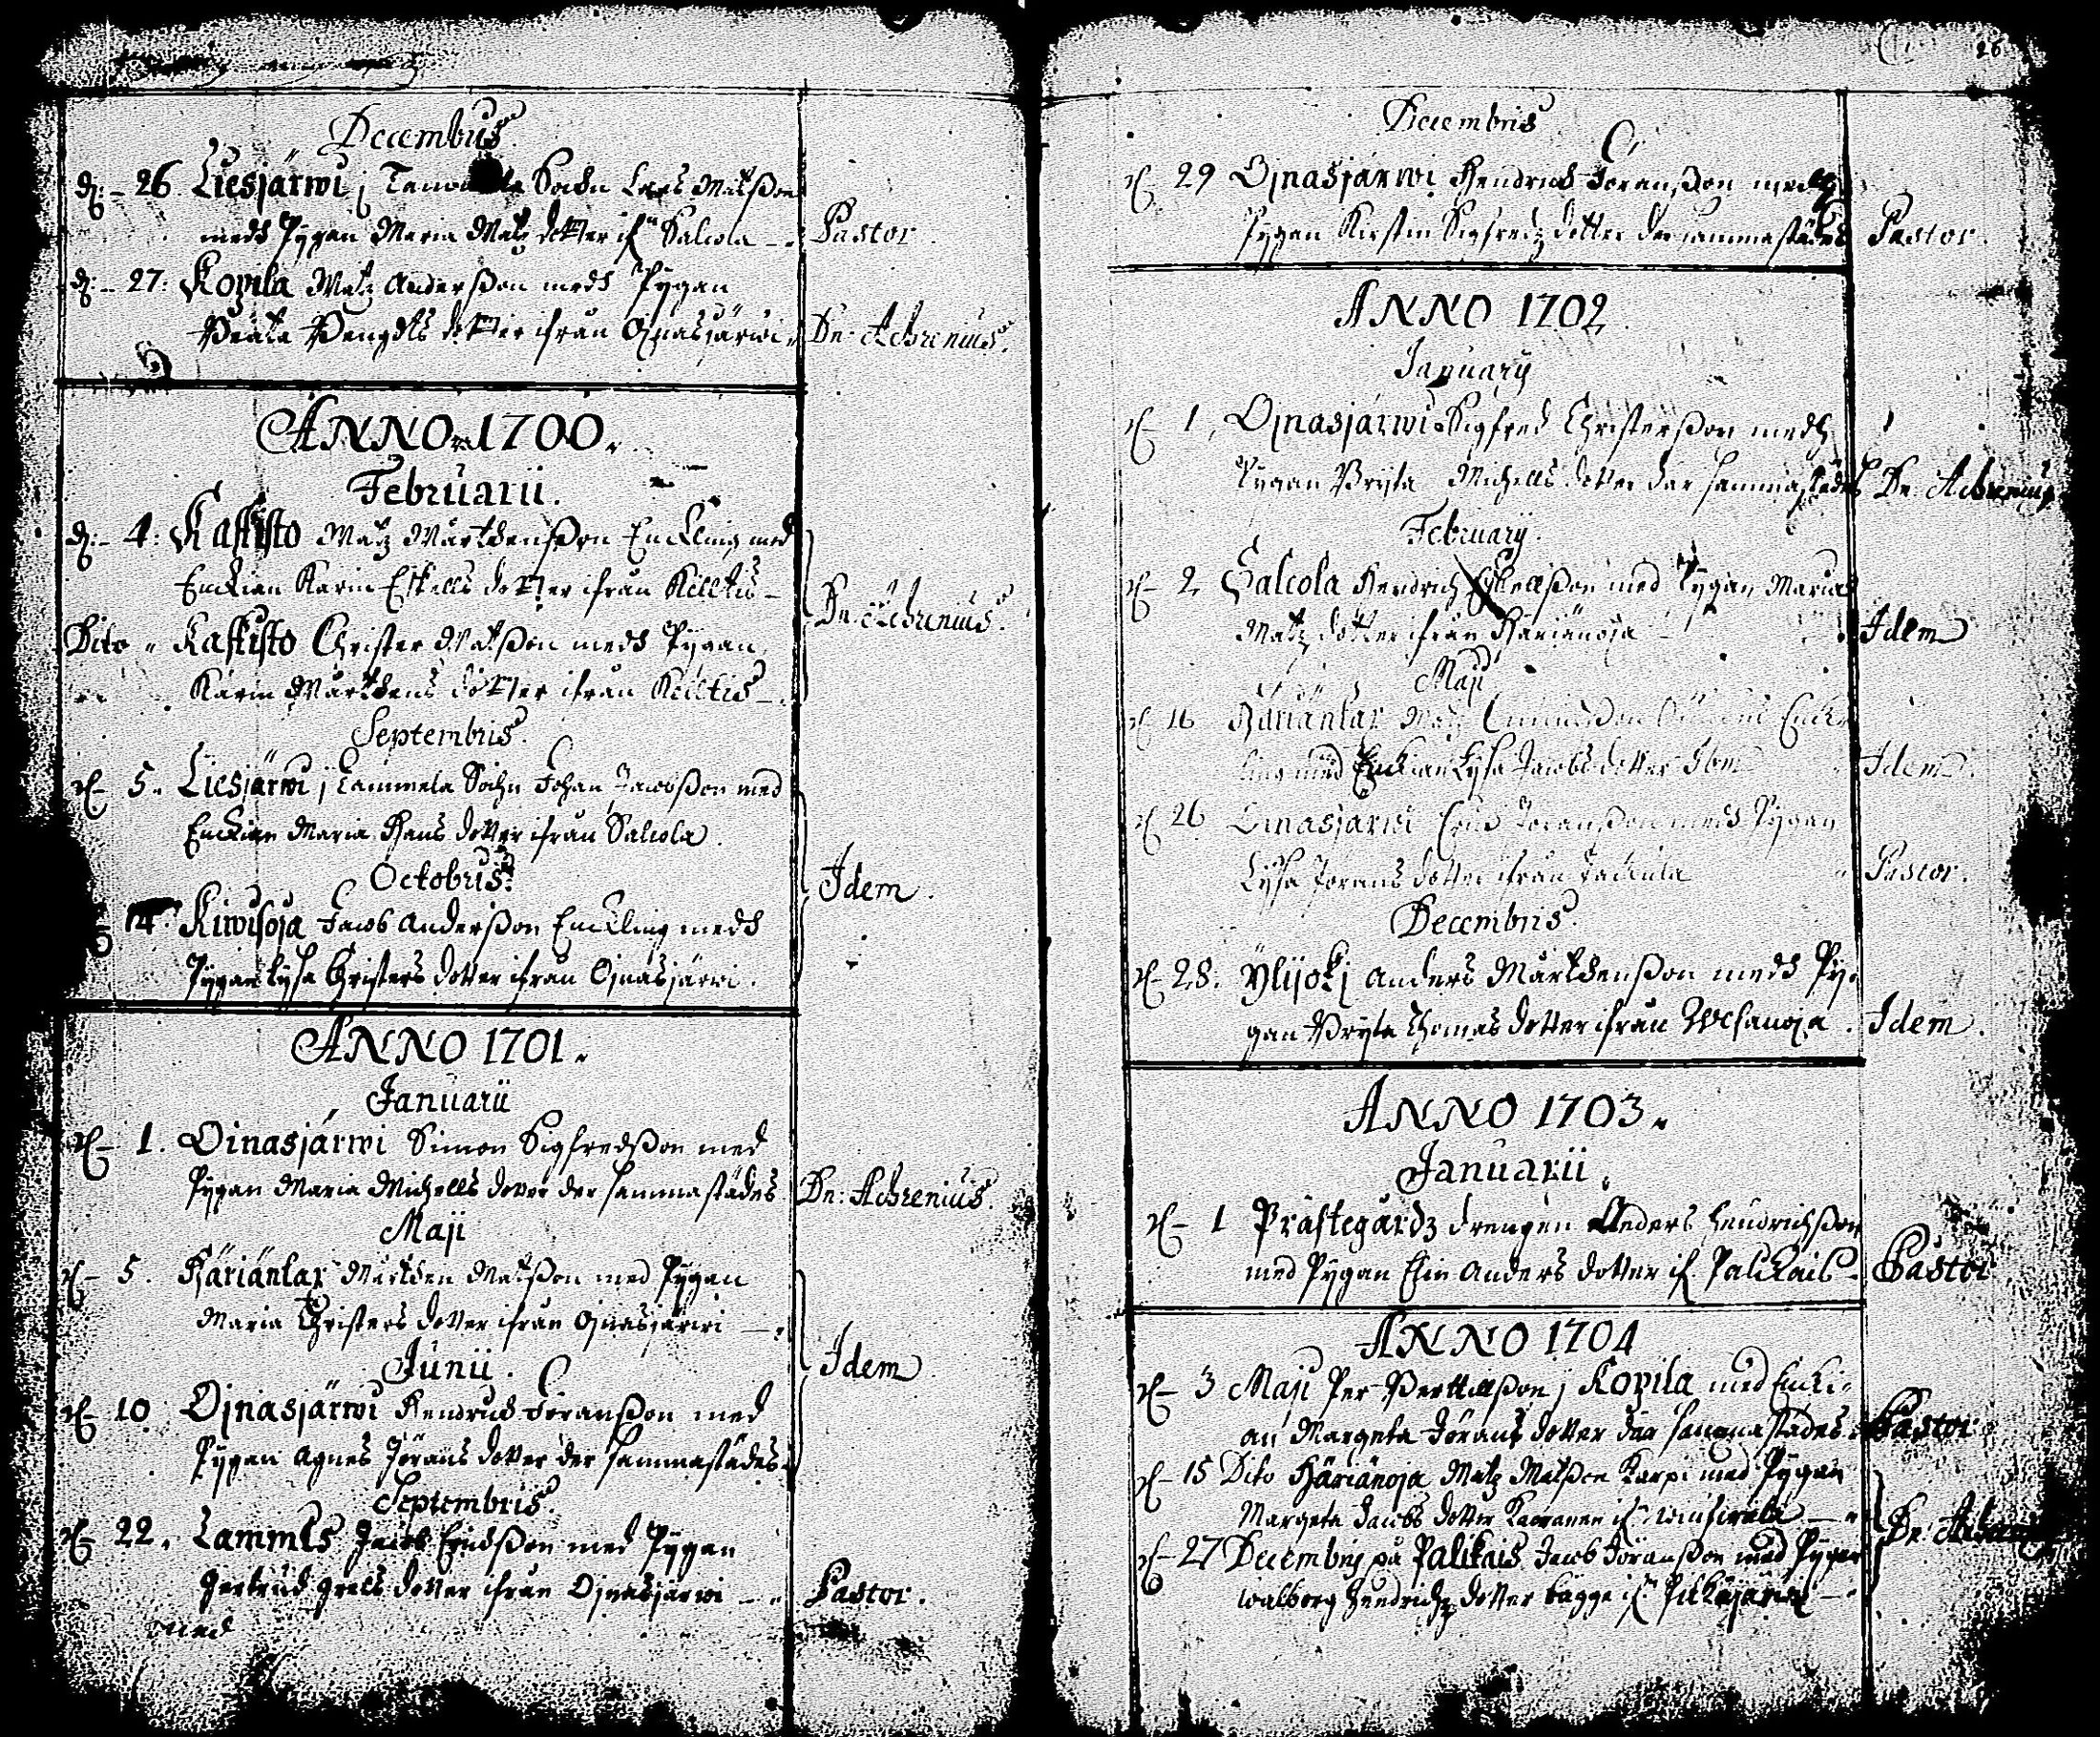 Decembris
d: - 26 Liesjärwi j Sochn Lars Matßon
medh Pygan Maria Matz dotter if: Salcola - Pastor.
d: - 27: Kopila Matz Anderßon medh Pygan
Beata Bengdts dotter ifrån Ojnasjärwi. Dn: Achrenius.
ANNO 1700.
Februarii.
d: - 4: Kaffisto Matz Mårthenßon Enckling med
Enckian Karin Eskells dotter ifrån Killtis -
Dn: Achrenius.
Dito " Kaffisto Christer Matßon medh Pygan
Karin Mårthens dotter ifrån Killtis -
Septembris
d - 5. Liesjärwi j Tammela Sochn Johan Jacobßon med
Enckian Maria Hans dotter ifrån Salcola.
Octobris:
Idem.
14. Kiwisoja Jacob Anderßon Enckling medh
Pygan Lysa Christers dotter ifrån Ojnasjärwi.
ANNO 1701.
Januarii
d - 1. Oinasjärwi Simon Sigfredßon med
Pygan Maria Michells dotter der sammastädes Dn: Achrenius.
Maji
d - 5. Häriänlax Mårthen Matßon med Pygan
Maria Christers dotter ifrån Ojnasjärwi -
Junii.
Idem
d - 10 Ojnasjärwi Hendrich Jöranßon med
Pygan Agnes Jörans dotter der sammastädes
Septembris
d - 22. Lammes Jacob Erichßon med Pygan
Gertrud Grels dotter ifrån Ojnasjärwi - Pastor.
med
26
Decembris
d 29 Ojnasjärwi Hendrich Jöranßon medh
Pygan Kirstin Sigfredz dotter der sammastädes Pastor.
ANNO 1702
January
d - 1, Ojnasjärwi Sigfred Christerßon medh
Pygan Bryta Michells dotter der sammastädes Dn: Achrenius
February.
d - 2 Salcola Hendrich Eskellßon med Pygan Maria
Matz dotter ifrån Häriänoja - Idem
Maji
d 16 Häriänlax Matz Enck-
ling med Enckian Lysa Jacobs dotter Ibm Idem.
d 26 Oinasjärwi Erich Jöranßon medh Pygan
Lysa Jörans dotter ifrån Pastor.
Decembris.
d - 28. Ylijoki Anders Mårthenßon medh Py-
gan Bryta Thomas dotter ifrån Idem.
ANNO 1703.
Januarii.
d - 1 Prästegårdz drengen Anders Hendrichßon
med Pygan Elin Anders dotter if. Palickais - Pastor
ANNO 1704
d - 3 Maji Per Bertillßon j Kopila med Encki-
an Margeta Jörans dotter där sammastädes. Pastor
d - 15 Dito Häriänoja Matz Matßon Karpi med Pygan
Margeta Jacobs dotter if:
Dn:
d - 27 Decembris på Palikais Jacob Jöranßon med Pygan
Walborg Hendrichz dotter bägge if: Pilkajärwi -